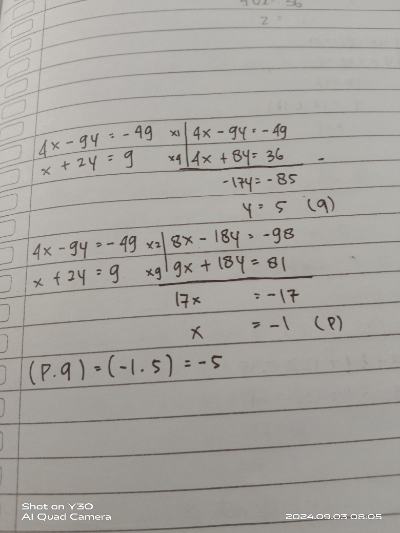 4x - 9y = -49 x1 | 4x - 9y = -49
x + 2y = 9 x4 | 4x + 8y = 36 -
-17y = -85
y = 5 (q)
4x - 9y = -49 x2 | 8x - 18y = -98
x + 2y = 9 x9 | 9x + 18y = 81
17x = -17
x = -1 (P)
(P.q) = (-1.5) = -5
Shot on Y30
AI Quad Camera
2024.09.03 08:05